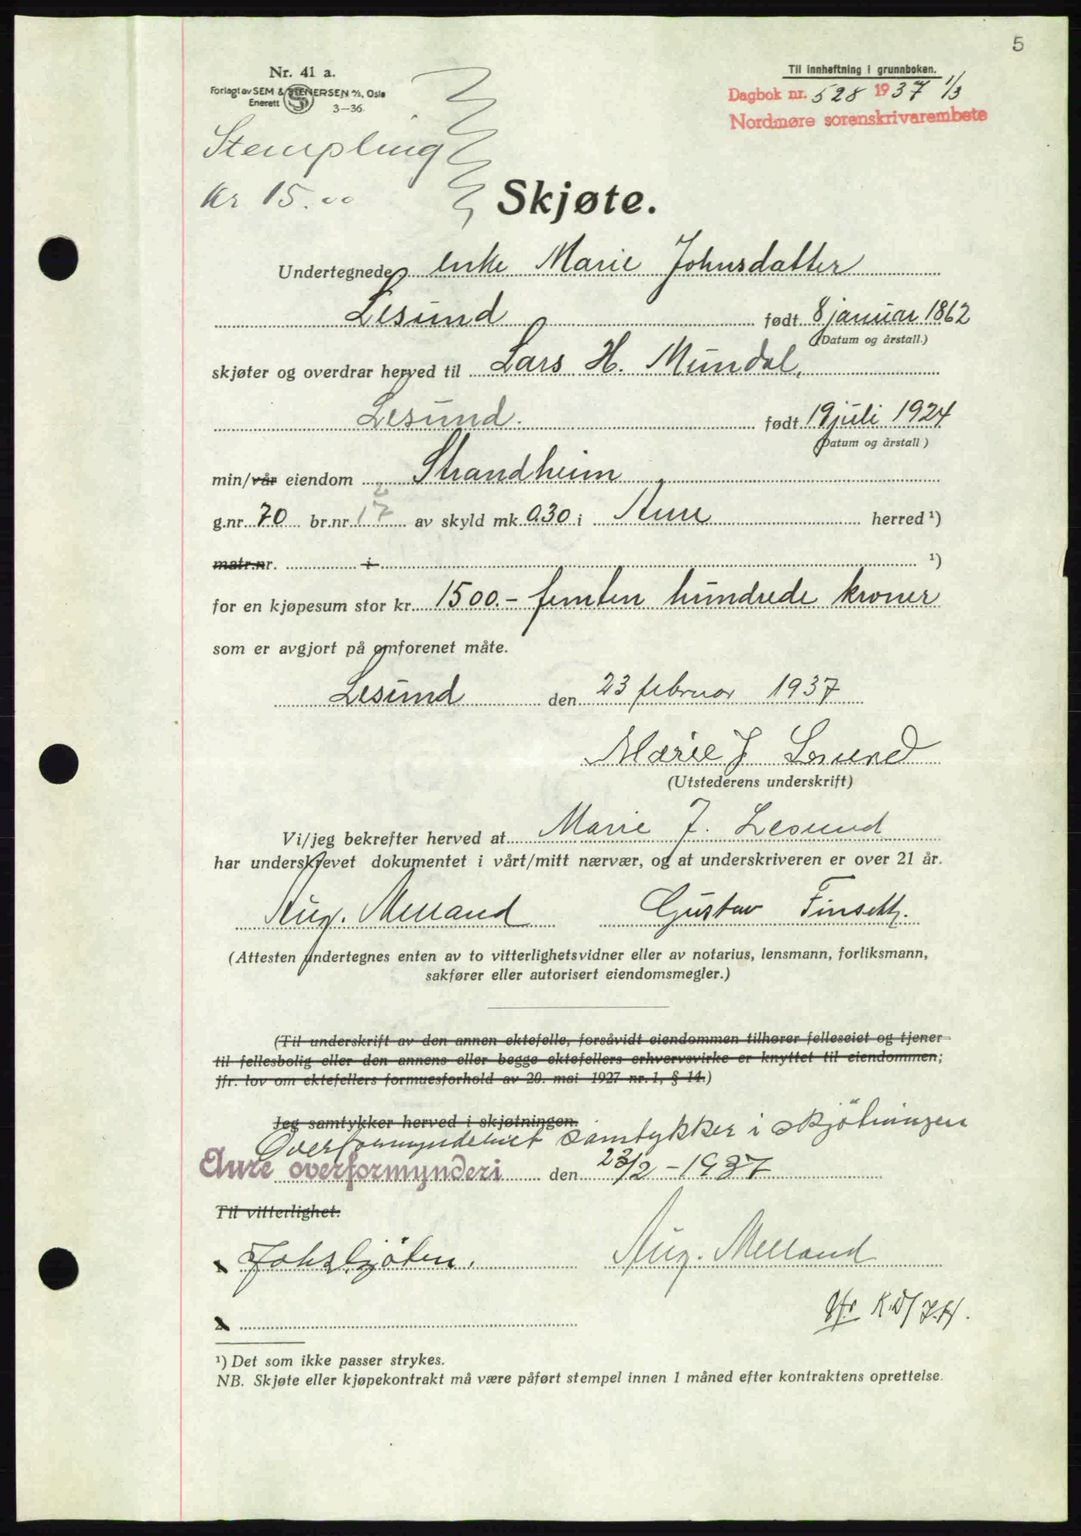 5
Nr. 41 a.
Forlagt av SEM & STENERSEN A/S, Oslo
Enerett 3-36
Til innheftning i grunnboken.
Dagbok nr. 528 1937 1/3
Nordmøre sorenskrivarembete
Stempling
Kr 15.00
Skjøte.
Undertegnede enke Marie Johnsdatter
Lesund født 8 januar 1862
(Datum og årstall.)
skjøter og overdrar herved til Lars H. Mundal,
Lesund. født 19 juli 1924
(Datum og årstall)
min/vår eiendom Strandheim
g.nr. 70 br.nr. 17 av skyld mk. 0.30 i Aure herred ¹)
matr.nr. i ¹)
for en kjøpesum stor kr. 1500.- femten hundrede kroner
som er avgjort på omforenet måte.
Lesund den 23 februar 1937
Marie J Lesund
(Utstederens underskrift)
Vi/jeg bekrefter herved at Marie J. Lesund
har underskrevet dokumentet i vårt/mitt nærvær, og at underskriveren er over 21 år.
Aug. Melland Gustav Finseth.
(Attesten undertegnes enten av to vitterlighetsvidner eller av notarius, lensmann, forliksmann,
sakfører eller autorisert eiendomsmegler.)
(Til underskrift av den annen ektefelle, forsåvidt eiendommen tilhører felleseiet og tjener
til fellesbolig eller den annens eller begge ektefellers erhvervsvirke er knyttet til eiendommen;
jfr. lov om ektefellers formuesforhold av 20. mai 1927 nr. 1, § 14.)
Jeg samtykker herved i skjøtningen.
Overformynderiet samtykker i skjøtningen
Aure overformynderi den 23/2 - 1937
Til vitterlighet:
1 Aug. Melland
2
¹) Det som ikke passer strykes.
NB. Skjøte eller kjøpekontrakt må være påført stempel innen 1 måned efter kontraktens oprettelse.